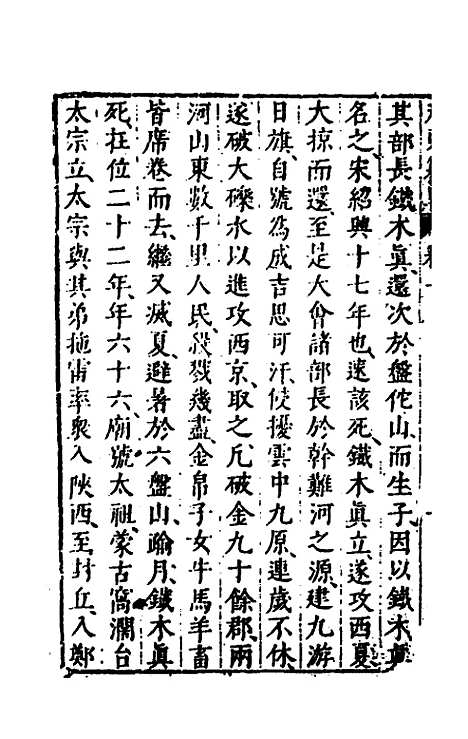 其部長鐵木真還次於盤佗山而生子因以鐵木真
名之宋紹興十七年也速該死鐵木真立遂攻西夏
大掠而還至是大會諸部長於幹難河之源建九游
日旗自號為成吉思可汗侵擾雲中九原連歲不休
遂破大礫水以進攻西京取之凡破金九十餘郡兩
河山東數千里人民殺戮幾盡金帛子女牛馬羊畜
皆席卷而去繼又滅夏避暑於六盤山踰月鐵木真
死在位二十二年年六十六廟號太祖蒙古窩濶台
太宗立太宗與其弟拖雷率衆入陝西至封丘入鄭